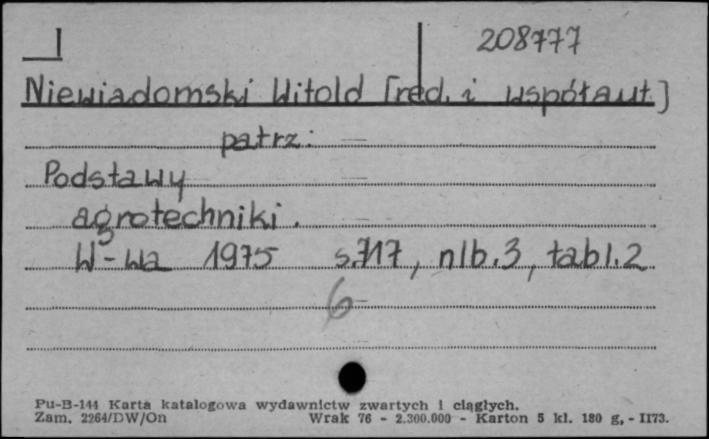 208777
Niewiadomski Witold [red. i współaut.]
patrz:
Podstawy
agrotechniki.
W-wa 1975 s.717, nlb.3, tabl.2
6
Pu-B-144 Karta katalogowa wydawnictw zwartych i ciągłych.
Zam. 2264/DW/On Wrak 76 - 2.300.000 - Karton 5 kl. 180 g. - II73.